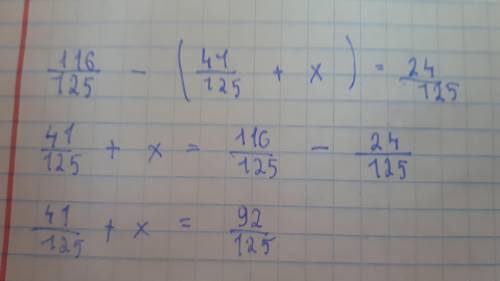 116/125 - (41/125 + x) = 24/125
41/125 + x = 116/125 - 24/125
41/125 + x = 92/125